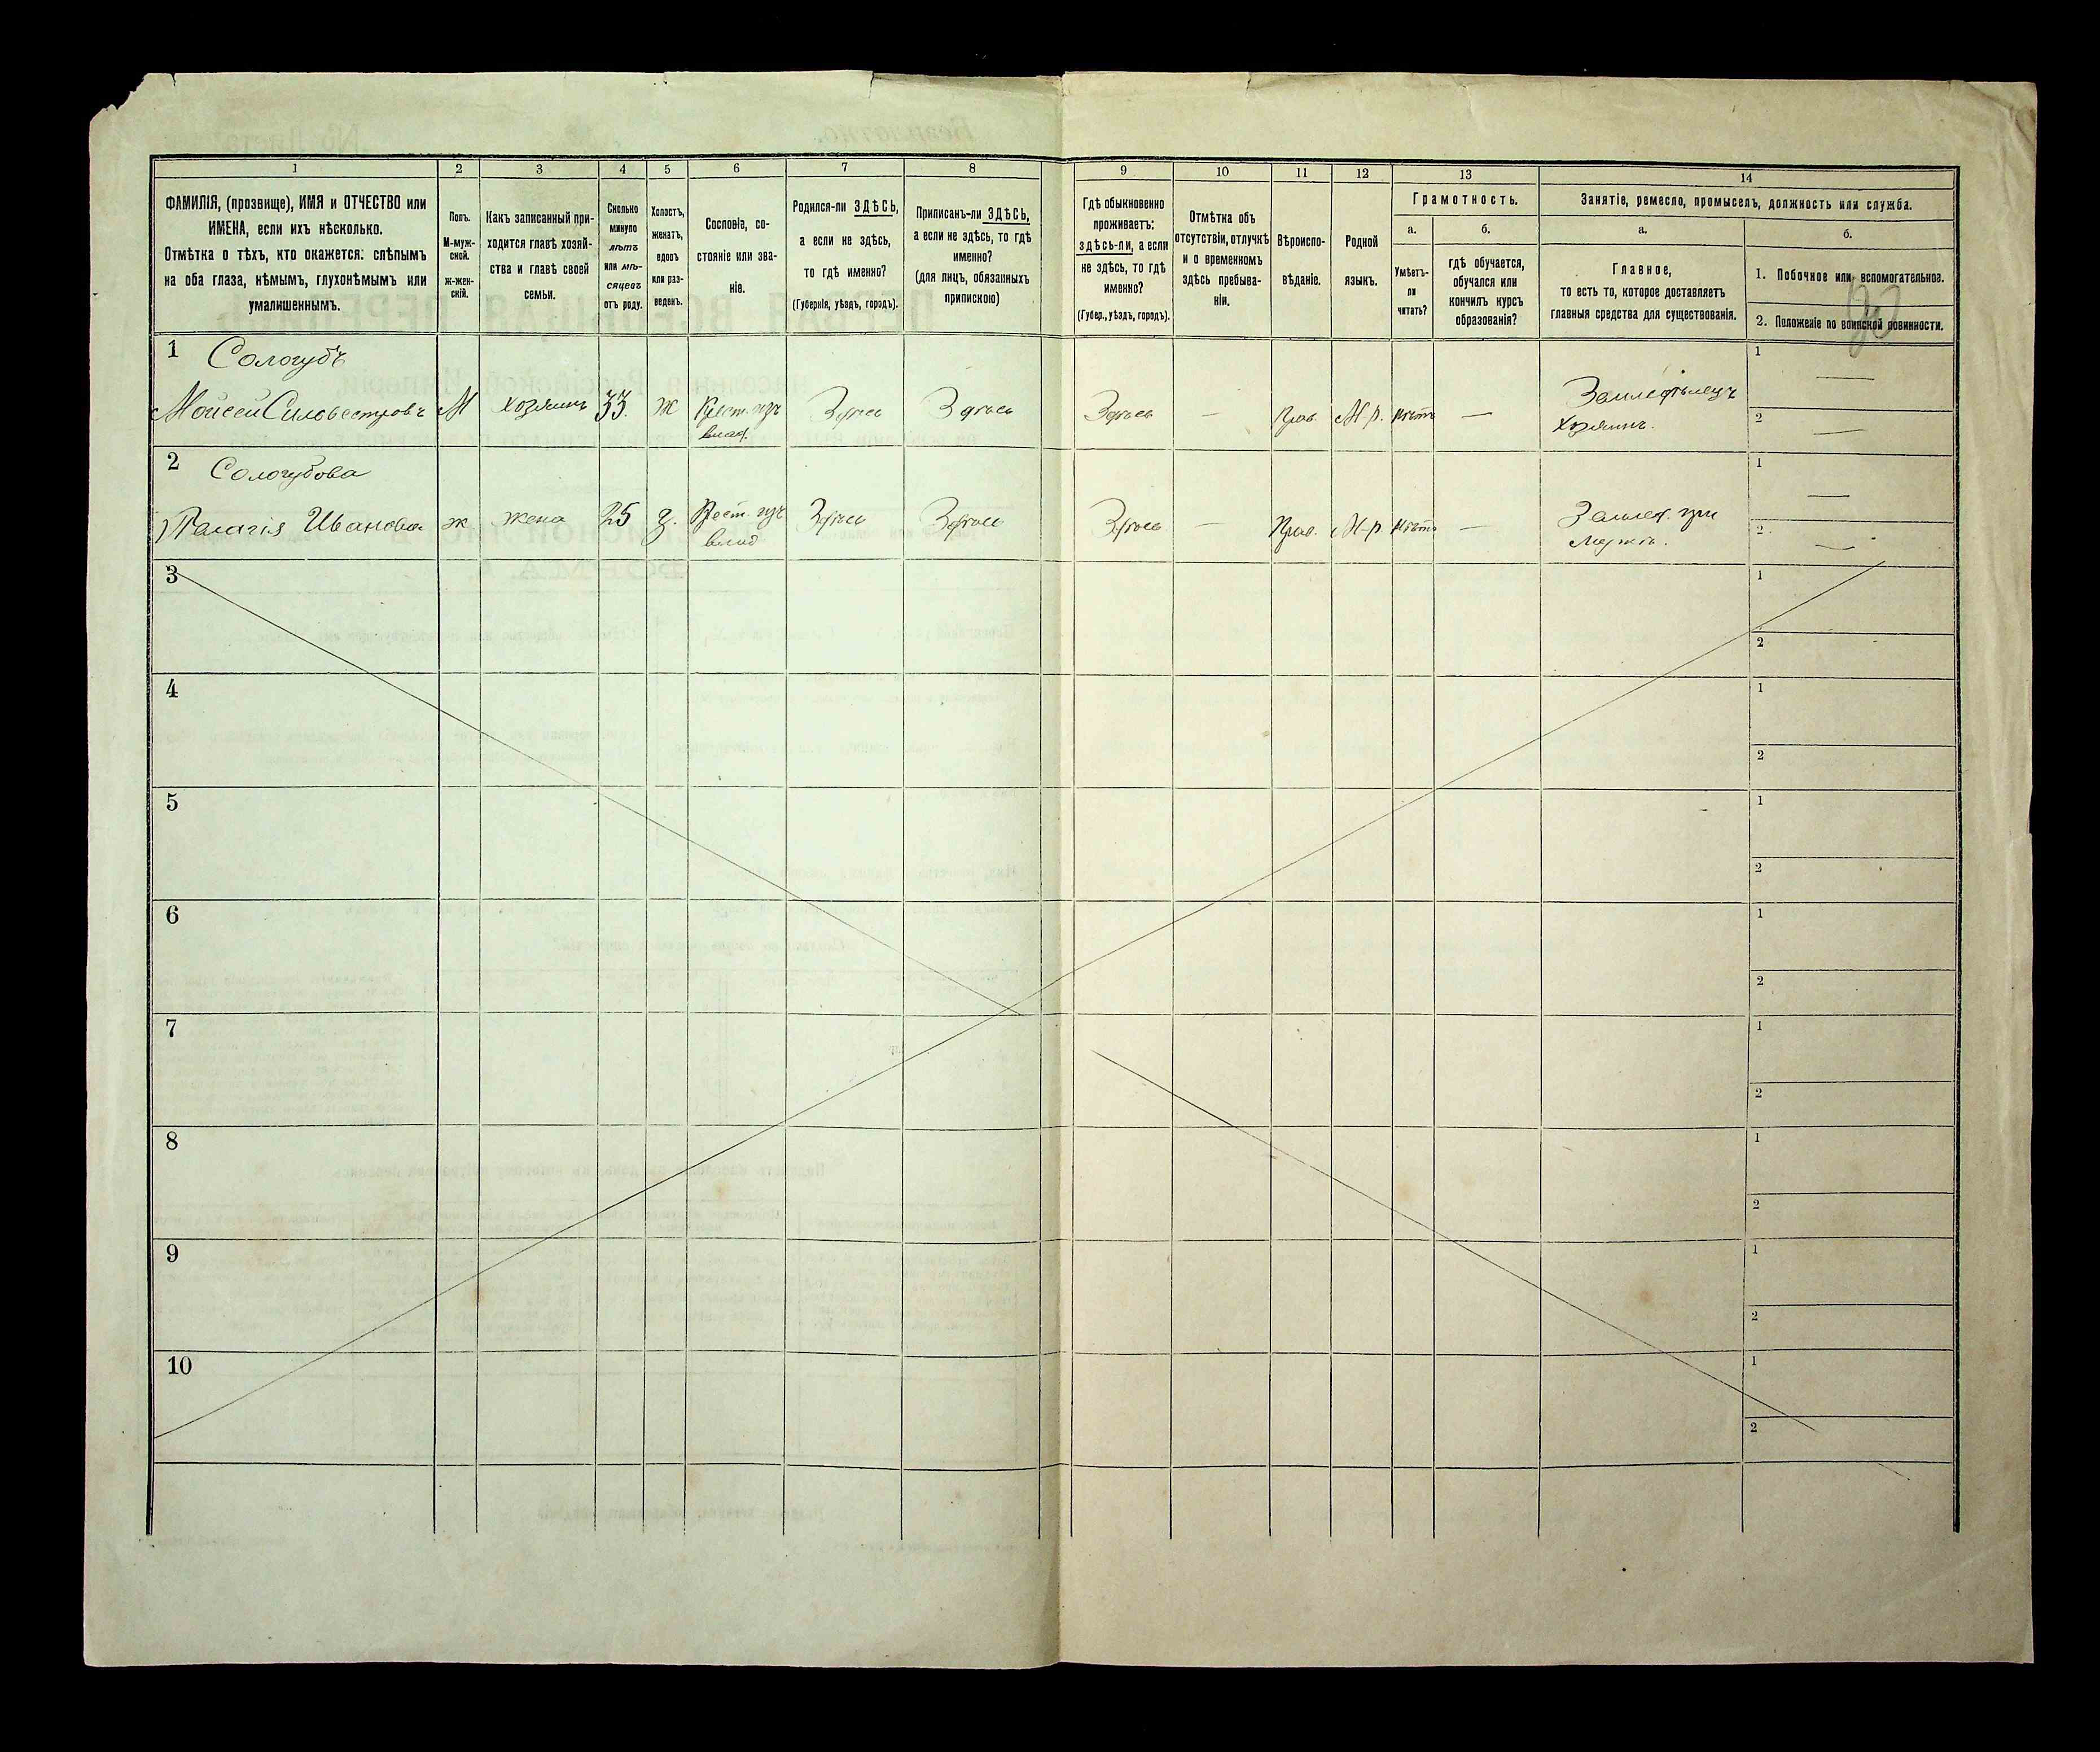 1 2 3 4 5 6 7 8 9 10 11 12 13 14
ФАМИЛІЯ, (прозвище), ИМЯ и ОТЧЕСТВО или
ИМЕНА, если ихъ нѣсколько.
Отмѣтка о тѣхъ, кто окажется: слѣпымъ
на оба глаза, нѣмымъ, глухонѣмымъ или
умалишеннымъ.
Полъ.
М-муж-
ской.
ж-жен-
скій.
Какъ записанный при-
ходится главѣ хозяй-
ства и главѣ своей
семьи.
Сколько
минуло
лѣтъ
или мѣ-
сяцевъ
отъ роду.
Холостъ,
женатъ,
вдовъ
или раз-
веденъ.
Сословіе, со-
стояніе или зва-
ніе.
Родился-ли ЗДѢСЬ,
а если не здѣсь,
то гдѣ именно?
(Губернія, уѣздъ, городъ).
Приписанъ-ли ЗДѢСЬ,
а если не здѣсь, то гдѣ
именно?
(для лицъ, обязанныхъ
припискою)
Гдѣ обыкновенно
проживаетъ:
здѣсь-ли, а если
не здѣсь, то гдѣ
именно?
(Губер., уѣздъ, городъ).
Отмѣтка объ
отсутствіи, отлучкѣ
и о временномъ
здѣсь пребыва-
ніи.
Вѣроиспо-
вѣданіе.
Родной
языкъ.
Грамотность.
а.
Умѣетъ-
ли
читать?
б.
гдѣ обучается,
обучался или
кончилъ курсъ
образованія?
Занятіе, ремесло, промыселъ, должность или служба.
а.
Главное,
то есть то, которое доставляетъ
главныя средства для существованія.
б.
1. Побочное или вспомогательное.
2. Положеніе по воинской повинности.
1 Сологубъ
Мойсей Сильвестровъ М хозяинъ 33. ж Крест. изъ Здѣсь Здѣсь Здѣсь — Прав. М-р. нѣтъ — Земледѣлецъ 1 —
влад. хозяинъ. 2 —
2 Сологубова
Палагія Иванова ж жена 25 з. Крест. изъ Здѣсь Здѣсь Здѣсь — Прав. М-р. нѣтъ — Землед. при 1 —
влад мужѣ. 2 —
3 1
2
4 1
2
5 1
2
6 1
2
7 1
2
8 1
2
9 1
2
10 1
2